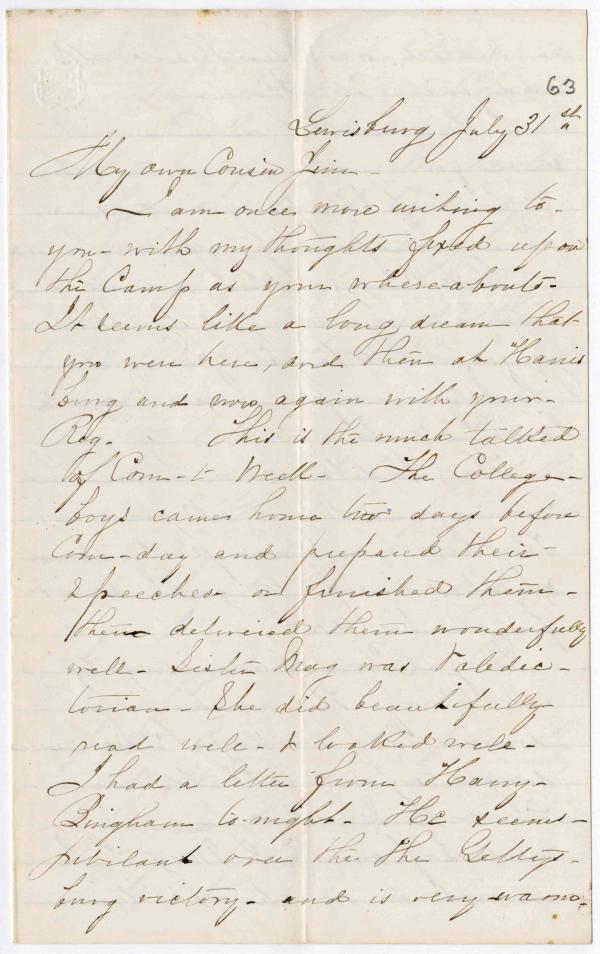 63
Lewisburg, July 31st
My own Cousin Jim-
I am once more writing to-
you- with my thoughts fixed upon
the Camp as your where-abouts-
It seems like a long dream that
you were here, and then at Harris
burg and now again with your-
Reg. This is the much talked
of Com-t Week- The College-
boys came home two days before
Com-day and prepared their-
speeches or finished them-
then delivered them wonderfully
well- Sister Mag was Valedic-
torian- She did beautifully-
read well- & looked well-
I had a letter from Harry-
Bingham to-night- He seems-
jubilant over the The Gettys-
burg victory- and is very warm-